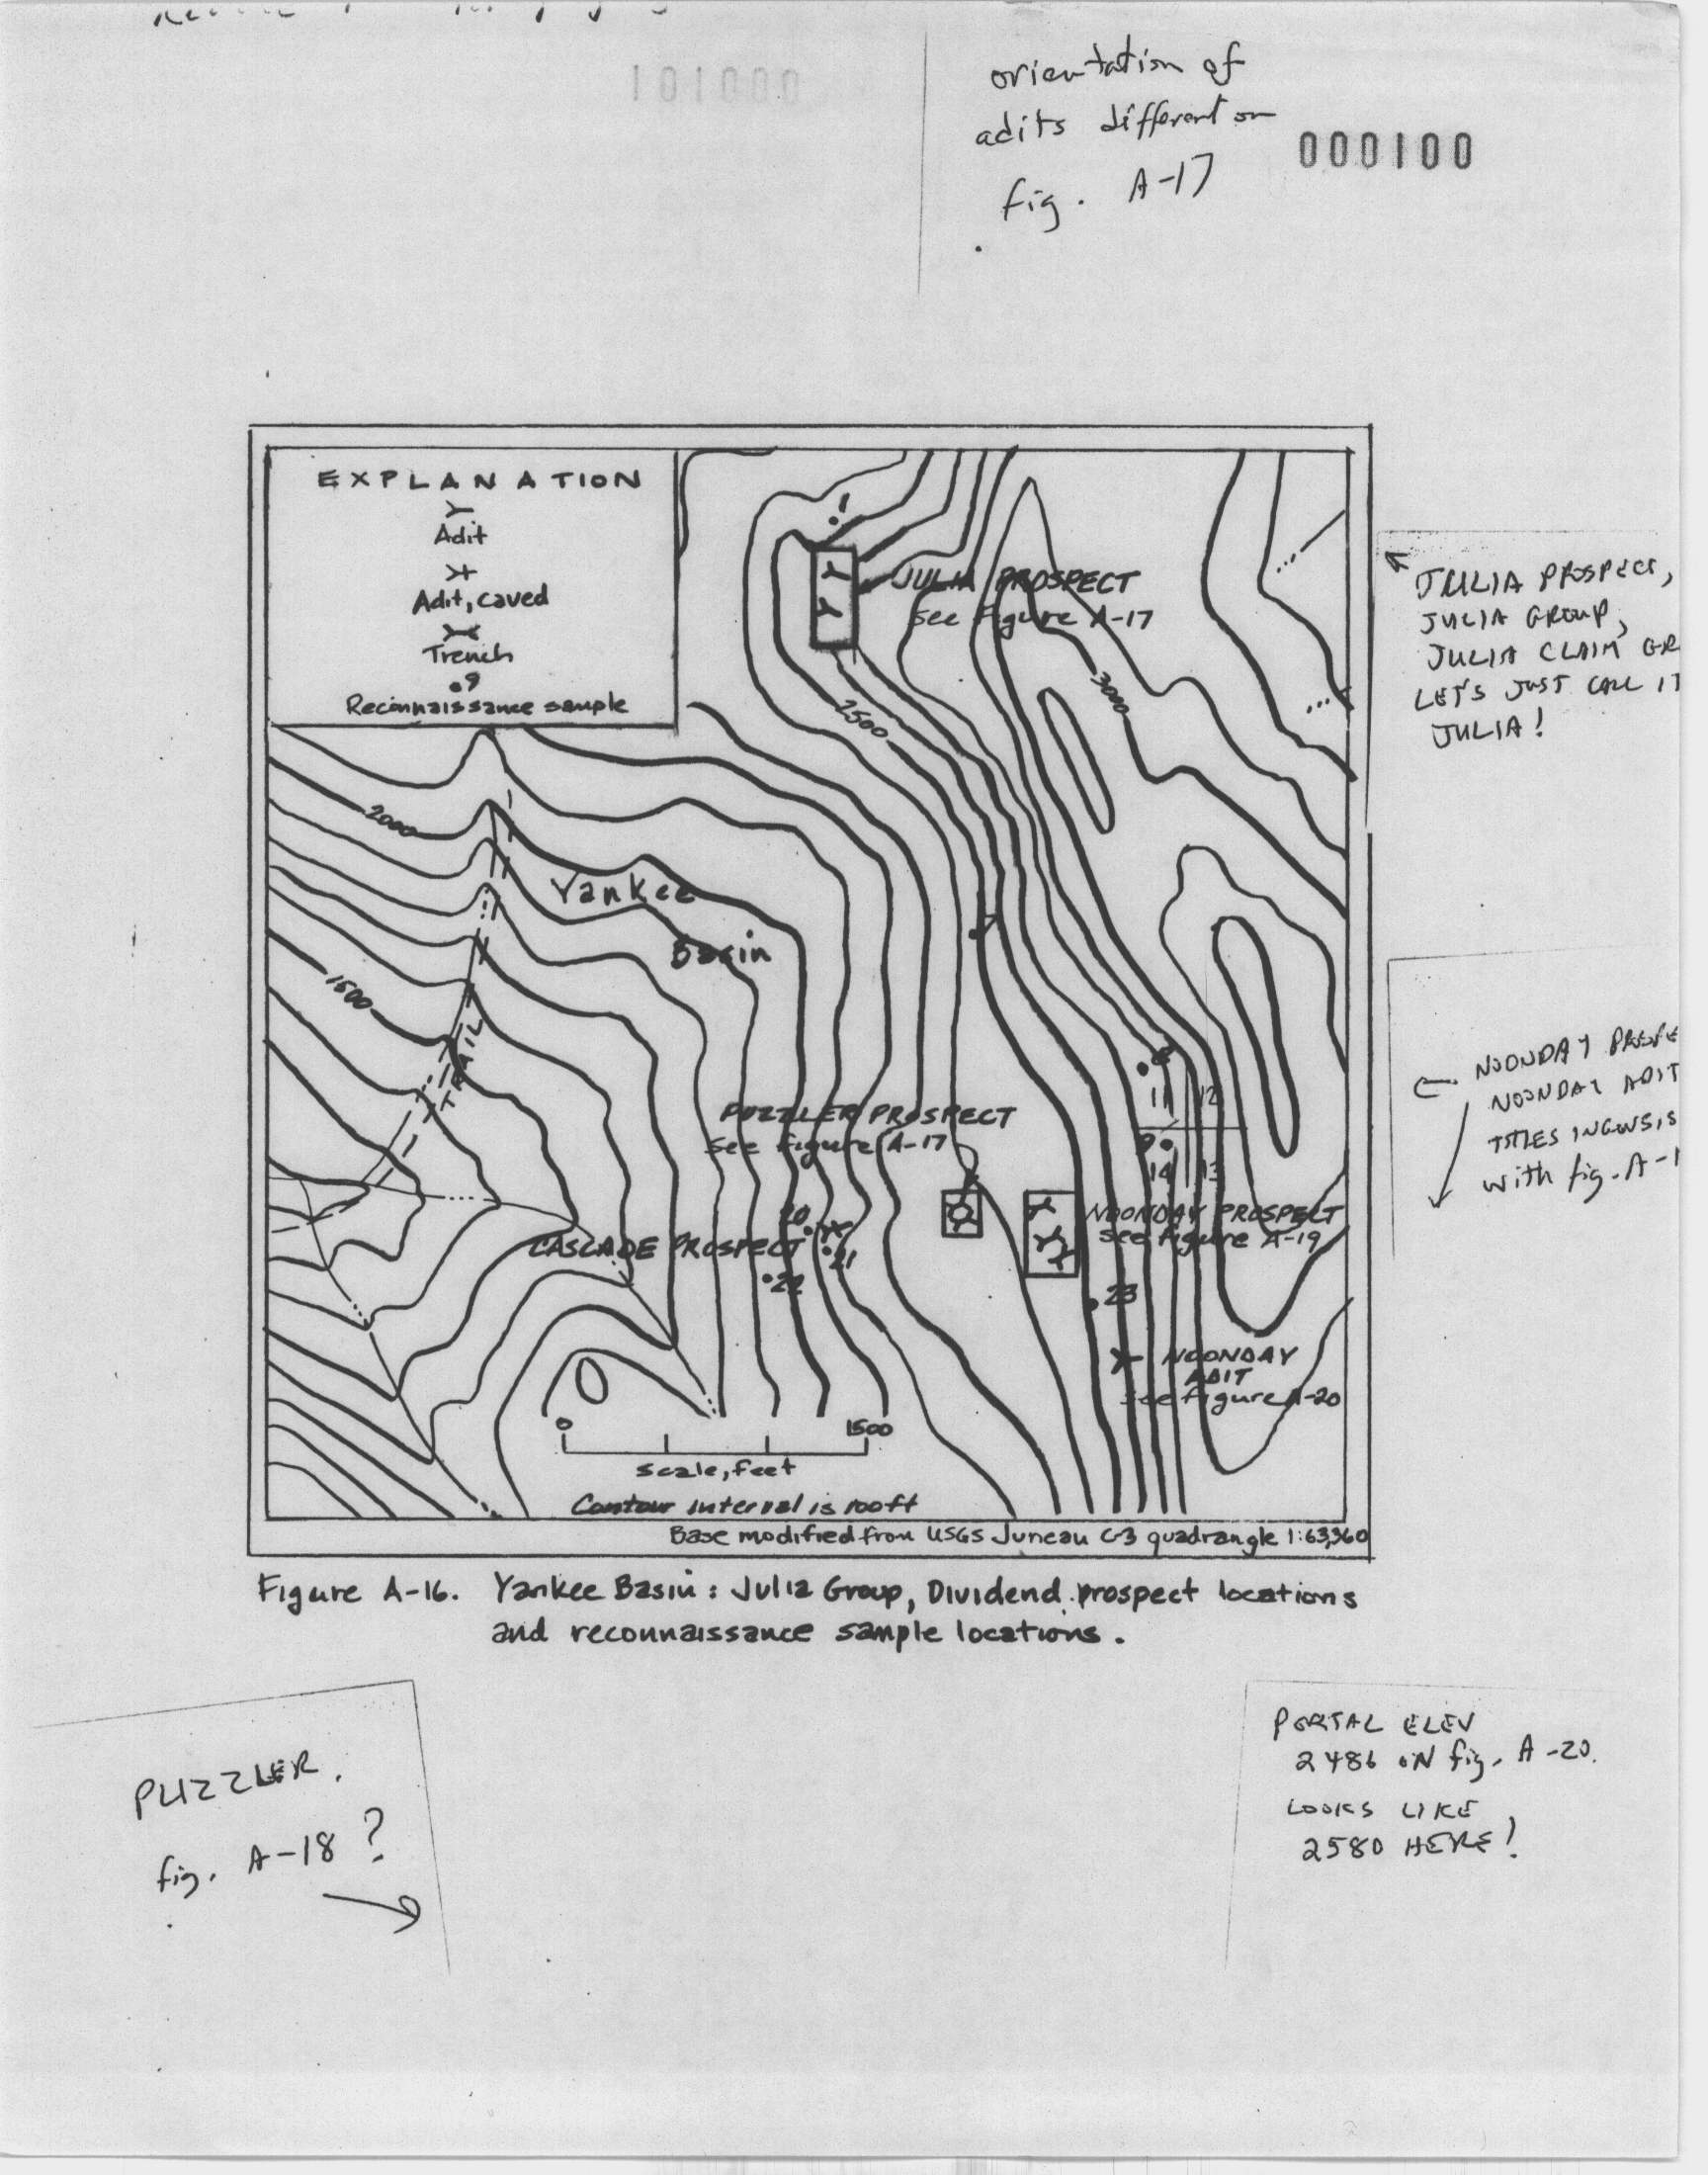 orientation of
adits different on
fig. A-17
000100
000101
EXPLANATION
Adit
Adit, caved
Trench
9
Reconnaissance sample
1
JULIA PROSPECT
See Figure A-17
3000
2500
2000
Yankee
Basin
1500
TRAIL
7
8
11 12
9
14 13
PUZZLER PROSPECT
See Figure A-17
20
CASCADE PROSPECT
21
22
NOONDAY PROSPECT
See Figure A-19
23
NOONDAY
ADIT
See Figure A-20
0 1500
Scale, feet
Contour interval is 100ft
Base modified from USGS Juneau C-3 quadrangle 1:63,360
Figure A-16. Yankee Basin: Julia Group, Dividend prospect locations
and reconnaissance sample locations.
JULIA PROSPECT,
JULIA GROUP,
JULIA CLAIM GR
LET'S JUST CALL IT
JULIA!
NOONDAY PROSPE
NOONDAY ADIT
TITLES INCONSIS
with fig. A-1
PUZZLER.
fig. A-18?
PORTAL ELEV
2486 ON fig. A-20.
LOOKS LIKE
2580 HERE!